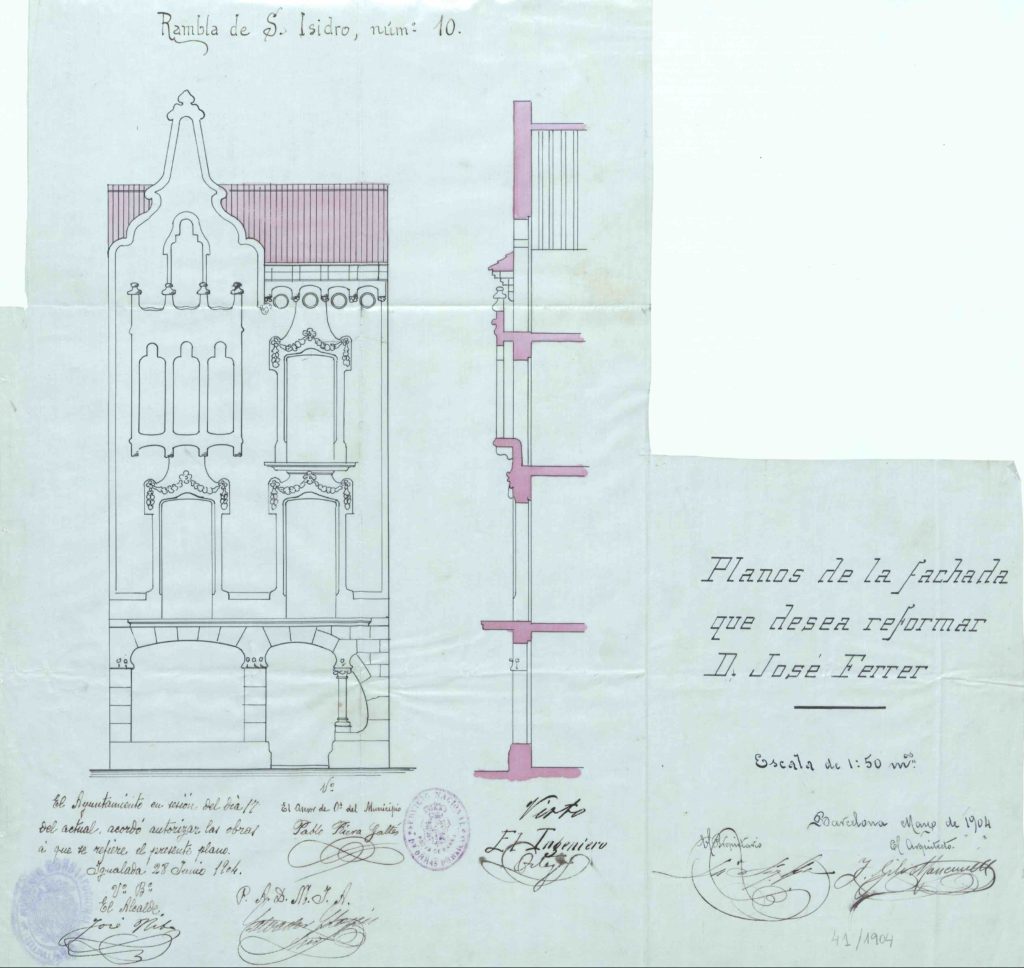 Rambla de S. Isidro, núm.º 10.
Planos de la fachada
que desea reformar
D. José Ferrer
Escala de 1:50 m.os
Barcelona Mayo de 1904
El Propietario
El Arquitecto
El Ayuntamiento en sesión del día 17
del actual, acordó autorizar las obras
á que se refiere el presente plano.
Igualada 28 Junio 1904.
Vº Bº
El Alcalde,
José
Vº
El Mayor de Oº del Municipio
Pablo
P. A. D. M. I. A.
Visto
El Ingeniero
41/1904